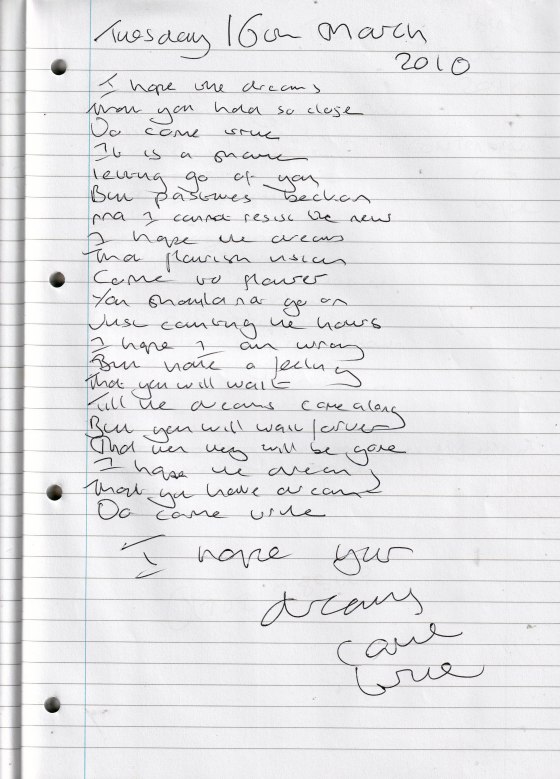 Tuesday 16th March
2010
I hope the dreams
That you hold so close
Do come true
It is a shame
letting go of you
But pastures beckon
And I cannot resist the new
I hope the dreams
That flourish within
Come to flower
You should not go on
Just counting the hours
I hope I am wrong
But have a feeling
That you will wait
Till the dreams come along
But you will wait forever
And then they will be gone
I hope the dreams
That you have dreamt
Do come true
I hope your
dreams
come
true